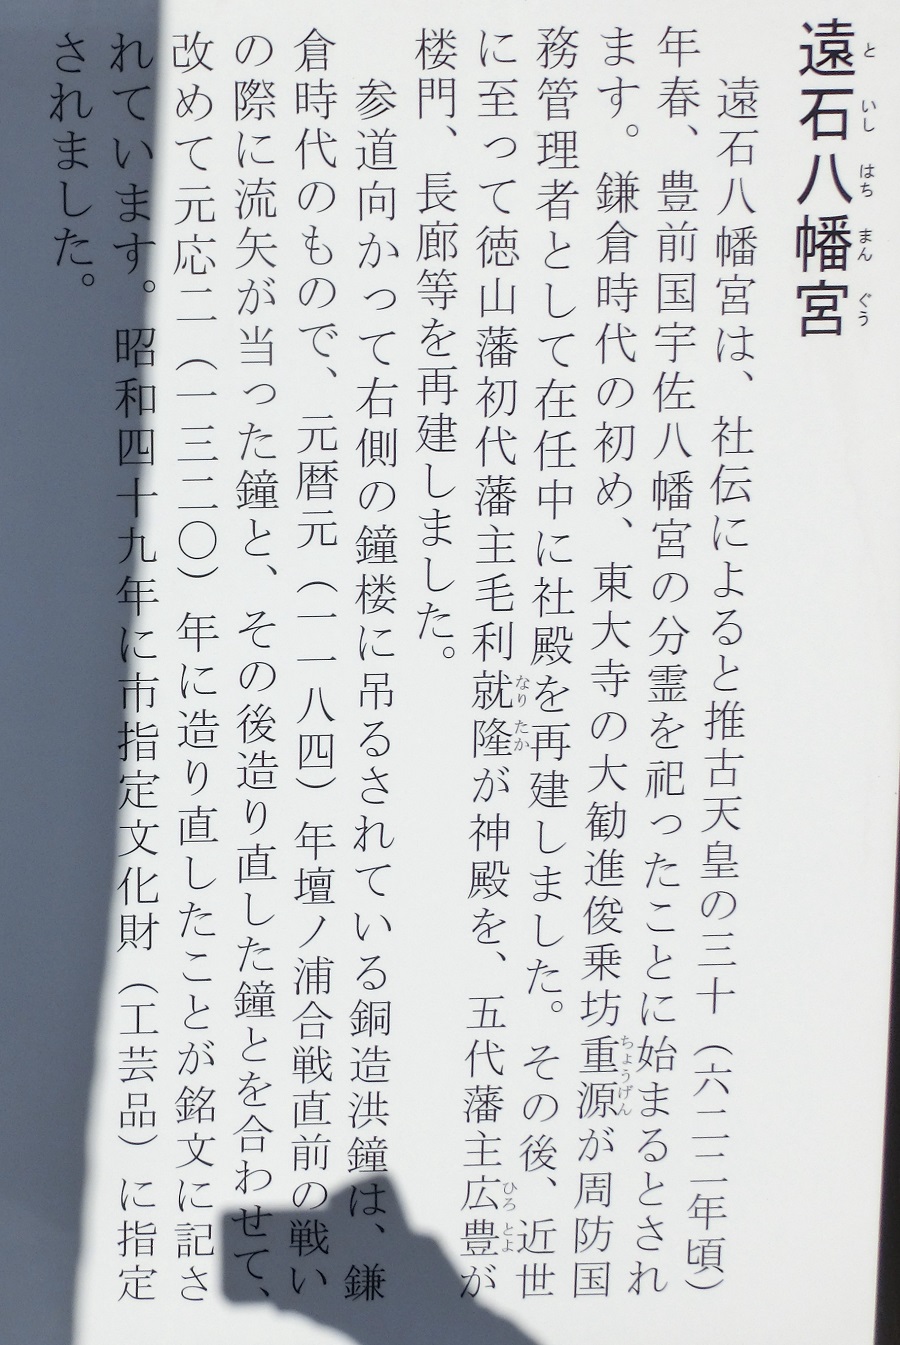 遠石八幡宮
と いし はち まん ぐう
遠石八幡宮は、社伝によると推古天皇の三十（六二二年頃）
年春、豊前国宇佐八幡宮の分霊を祀ったことに始まるとされ
ます。鎌倉時代の初め、東大寺の大勧進俊乗坊重源が周防国
ちょうげん
務管理者として在任中に社殿を再建しました。その後、近世
に至って徳山藩初代藩主毛利就隆が神殿を、五代藩主広豊が
なり たか ひろ とよ
楼門、長廊等を再建しました。
参道向かって右側の鐘楼に吊るされている銅造洪鐘は、鎌
倉時代のもので、元暦元（一一八四）年壇ノ浦合戦直前の戦い
の際に流矢が当った鐘と、その後造り直した鐘とを合わせて、
改めて元応二（一三二〇）年に造り直したことが銘文に記さ
れています。昭和四十九年に市指定文化財（工芸品）に指定
されました。